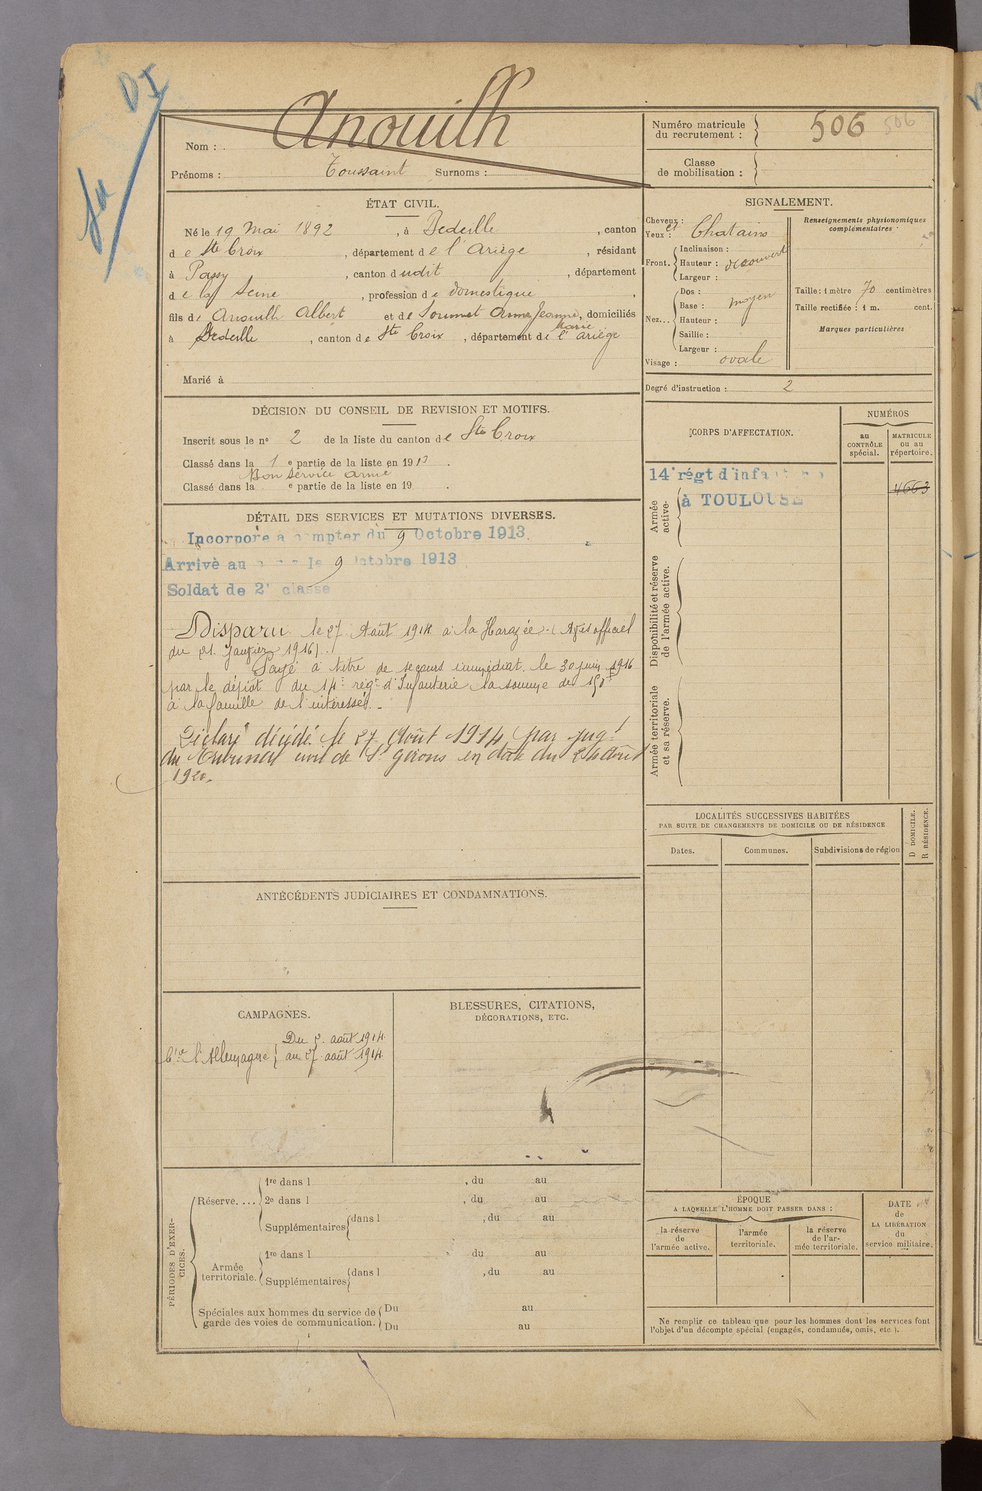 Nom : Anouilh
Prénoms : Toussaint Surnoms :
Numéro matricule du recrutement : 506 506
Classe de mobilisation :
ÉTAT CIVIL.
Né le 19 Mai 1892, à Bedeille, canton
de Ste Croix, département de l'Ariège, résidant
à Passy, canton dudit, département
de la Seine, profession de domestique,
fils de Anouilh Albert et de Soumet Anne Jeanne, domiciliés
Marie
à Bedeille, canton de Ste Croix, département de l'Ariège
Marié à
DÉCISION DU CONSEIL DE REVISION ET MOTIFS.
Inscrit sous le no 2 de la liste du canton de Ste Croix
Classé dans la 1e partie de la liste en 1913.
Bon service armé
Classé dans la e partie de la liste en 19 .
DÉTAIL DES SERVICES ET MUTATIONS DIVERSES.
Incorporé à compter du 9 Octobre 1913.
Arrivé au le 9 Octobre 1913
Soldat de 2e classe
Disparu le 27 Août 1914 à la Harazée. (Avis officiel
du 21 Janvier 1916).
Payé à titre de secours immédiat le 30 juin 1916
par le dépôt du 14e régt d'Infanterie la somme de 151f
à la famille de l'intéressé.
Déclaré décédé le 27 Août 1914 par jugt
du Tribunal civil de St Girons en date du 24 Août
1920.
ANTÉCÉDENTS JUDICIAIRES ET CONDAMNATIONS.
CAMPAGNES.
Du 2 août 1914
Ctre l'Allemagne { au 27 août 1914
BLESSURES, CITATIONS,
DÉCORATIONS, ETC.
PÉRIODES D'EXERCICES.
Réserve. ...
1re dans l , du au
2e dans l , du au
Supplémentaires dans l , du au
Armée territoriale.
1re dans l du au
Supplémentaires dans l , du au
Spéciales aux hommes du service de Du au
garde des voies de communication. Du au
SIGNALEMENT.
Cheveux :
et Chatains
Yeux :
Front.
Inclinaison :
Hauteur : découvert
Largeur :
Nez...
Dos :
Base : moyen
Hauteur :
Saillie :
Largeur :
Visage : ovale
Renseignements physionomiques
complémentaires :
Taille : 1 mètre 70 centimètres
Taille rectifiée : 1 m. cent.
Marques particulières
Degré d'instruction : 2
CORPS D'AFFECTATION.
NUMÉROS
au
CONTRÔLE
spécial.
MATRICULE
ou au
répertoire.
14e régt d'infa
à TOULOUSE
4663
Armée
active.
Disponibilité et réserve
de l'armée active.
Armée territoriale
et sa réserve.
LOCALITÉS SUCCESSIVES HABITÉES
PAR SUITE DE CHANGEMENTS DE DOMICILE OU DE RÉSIDENCE
D DOMICILE.
R RÉSIDENCE.
Dates. Communes. Subdivisions de région
ÉPOQUE
A LAQUELLE L'HOMME DOIT PASSER DANS :
la réserve
de
l'armée active.
l'armée
territoriale.
la réserve
de l'armée territoriale.
DATE
de
LA LIBÉRATION
du
service militaire.
Ne remplir ce tableau que pour les hommes dont les services font
l'objet d'un décompte spécial (engagés, condamnés, omis, etc.).